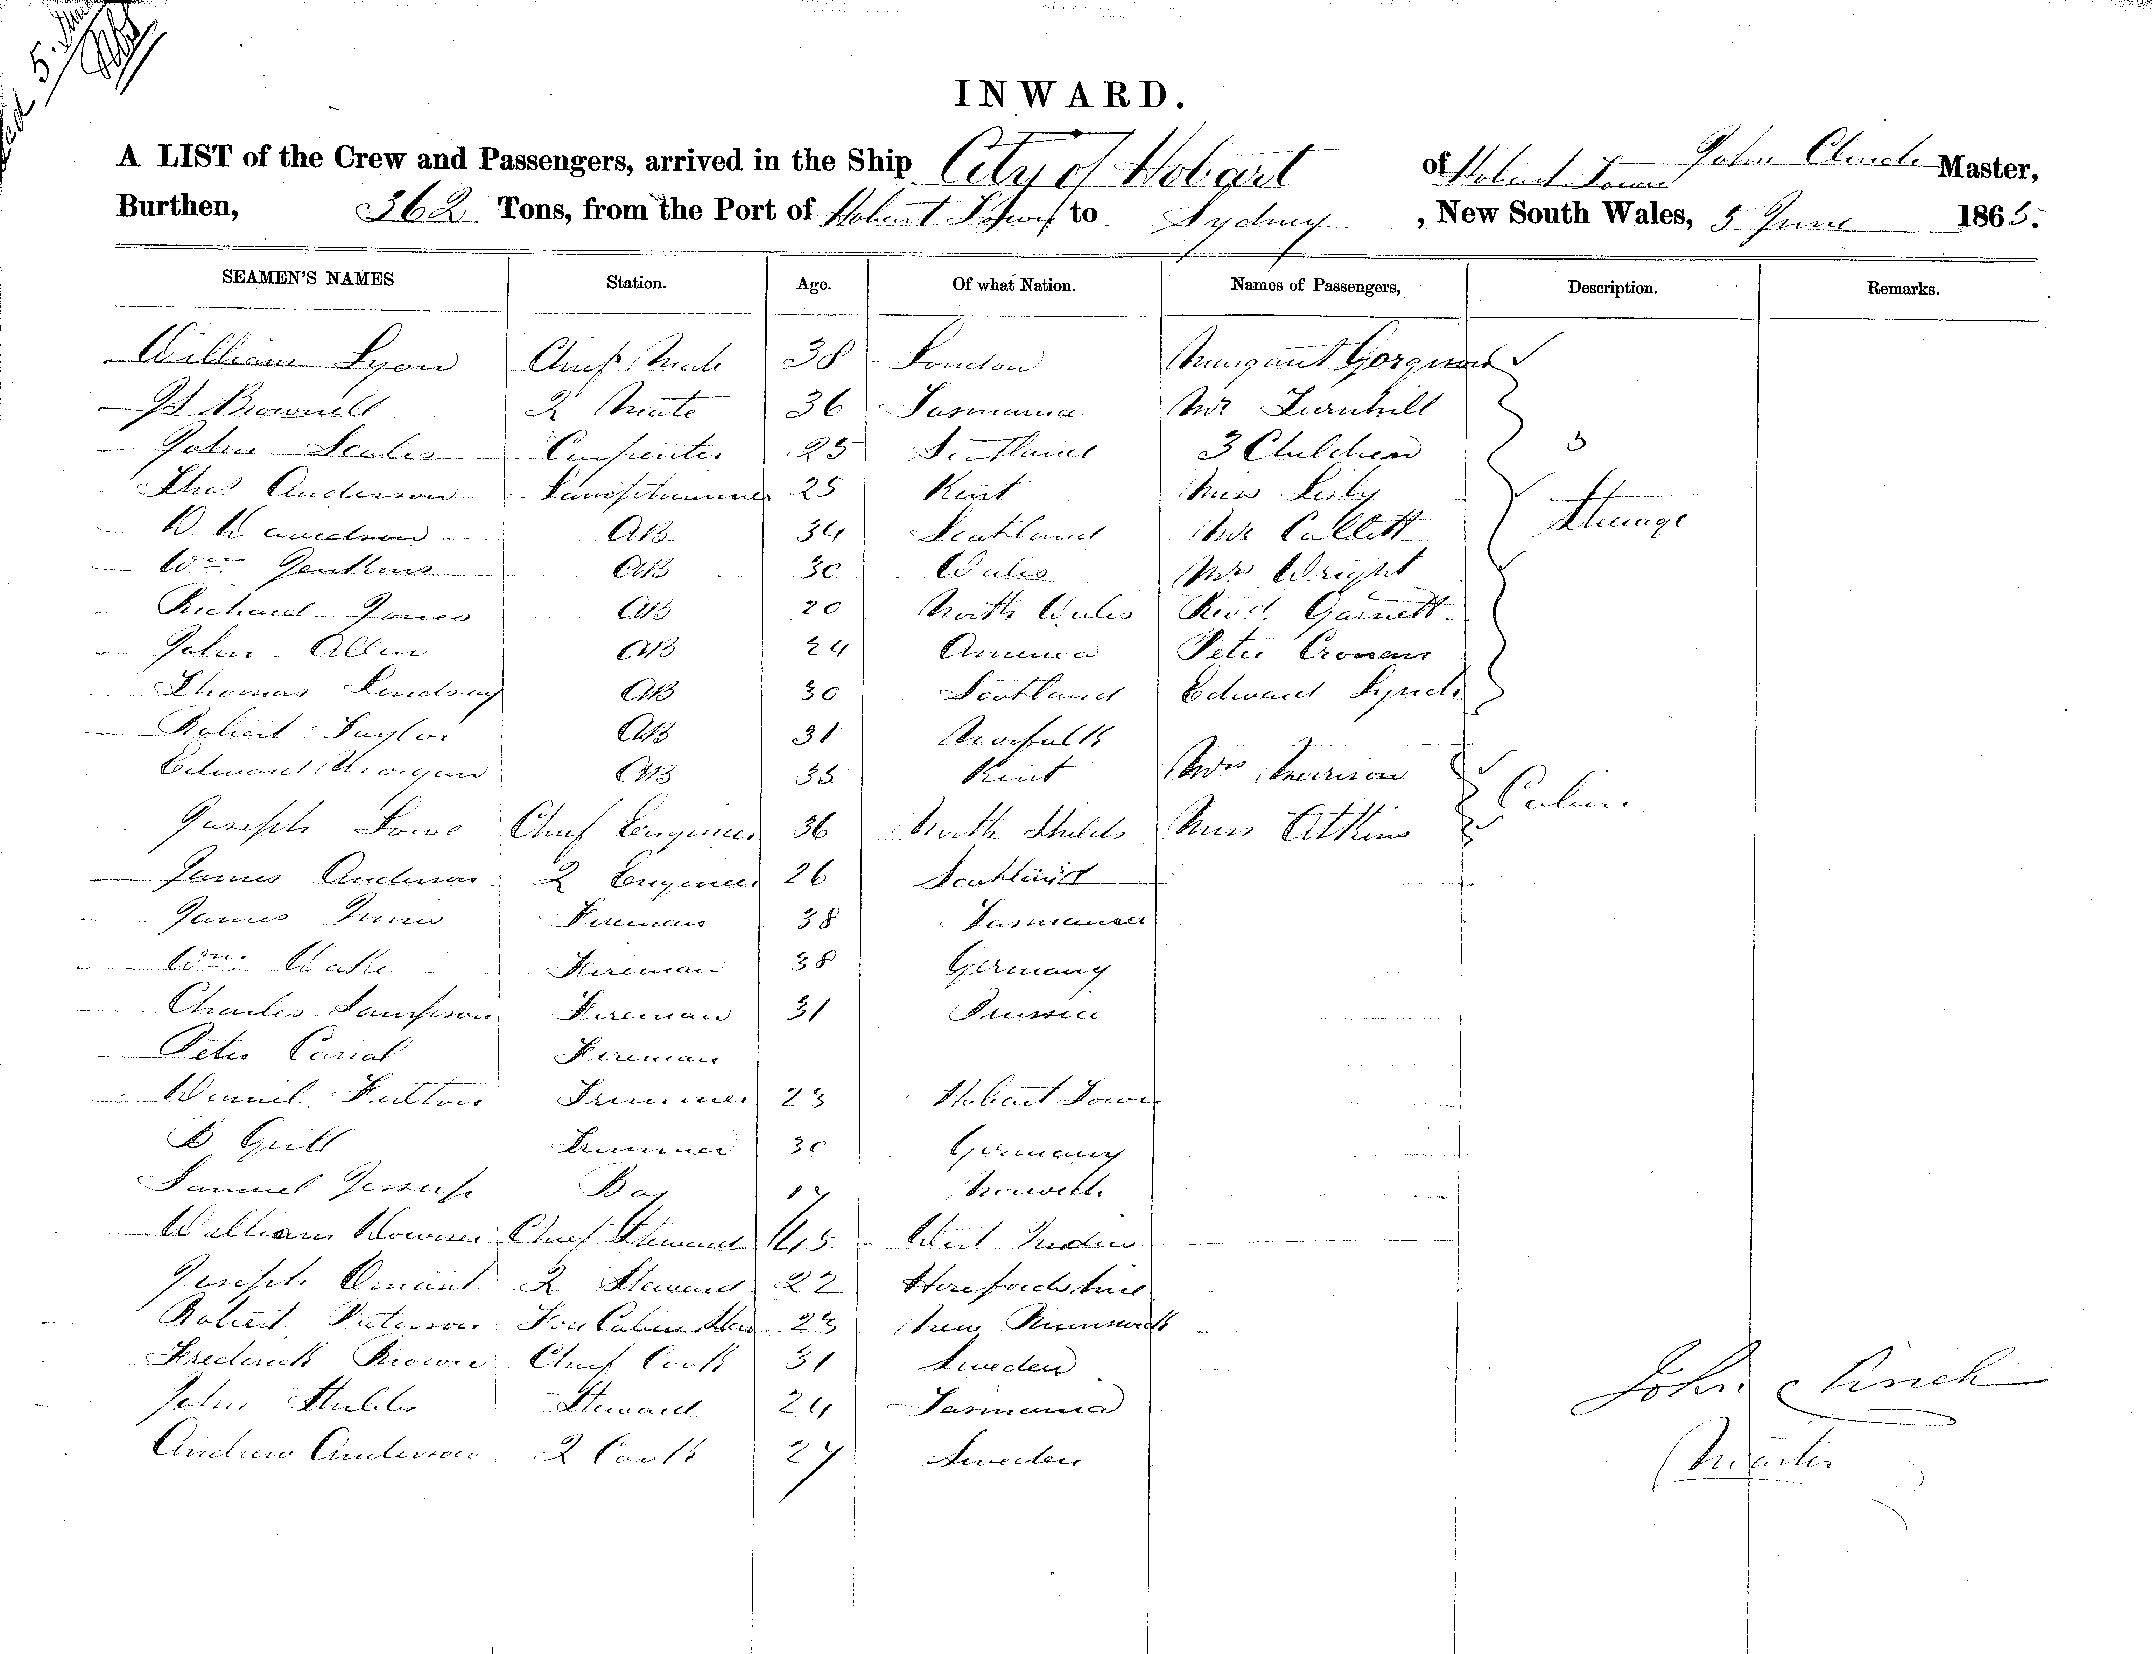 5
INWARD.
A LIST of the Crew and Passengers, arrived in the Ship City of Hobart of Hobart Town John Clinch Master,
Burthen, 362 Tons, from the Port of Hobart Town to Sydney , New South Wales, 5 June 1865.
SEAMEN'S NAMES Station. Age. Of what Nation. Names of Passengers, Description. Remarks.
William Lyon Chief Mate 38 London Margaret
Brownell 2 Mate 36 Tasmania Mr Turnbull
John Scales Carpenter 25 Scotland 3 Children 3
Thos Anderson Lamptrimmer 25 Kent Miss
D. AB 34 Scotland Mr Collett Steerage
Wm Jenkins AB 30 Wales Mrs Wright
Richard Jones AB 20 North Wales Revd. Garnett
John Allen AB 24 America Peter Cronan
Thomas Lindsay AB 30 Scotland Edward Lynch
Robert Taylor AB 31 Norfolk
Edward Morgan AB 35 Kent Mrs Morrison Cabin
Joseph Lowe Chief Engineer 36 North Shields Miss Atkins
James Anderson 2 Engineer 26 Scotland
James Fireman 38 Tasmania
Wm. Fireman 38 Germany
Charles Sampson Fireman 31 Prussia
Peter Fireman
Daniel Fulton Trimmer 23 Hobart Town
B Grill Trimmer 30 Germany
Samuel Jessup Boy 17 Norwich
William Chief Steward 45 West Indies
Joseph 2 Steward 22 Herefordshire
Robert Paterson Fore Cabin Stew 23 New Brunswick
Frederick Brown Chief Cook 31 Sweden
John Shields Steward 24 Tasmania
Andrew Anderson 2 Cook 27 Sweden
John Clinch
Master